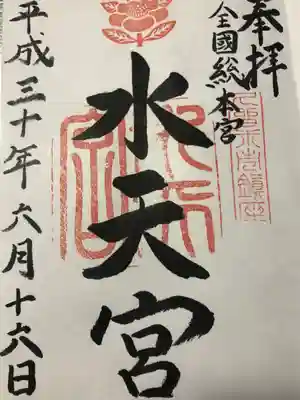 奉拝
全國総本宮
水天宮
平成三十年六月十六日